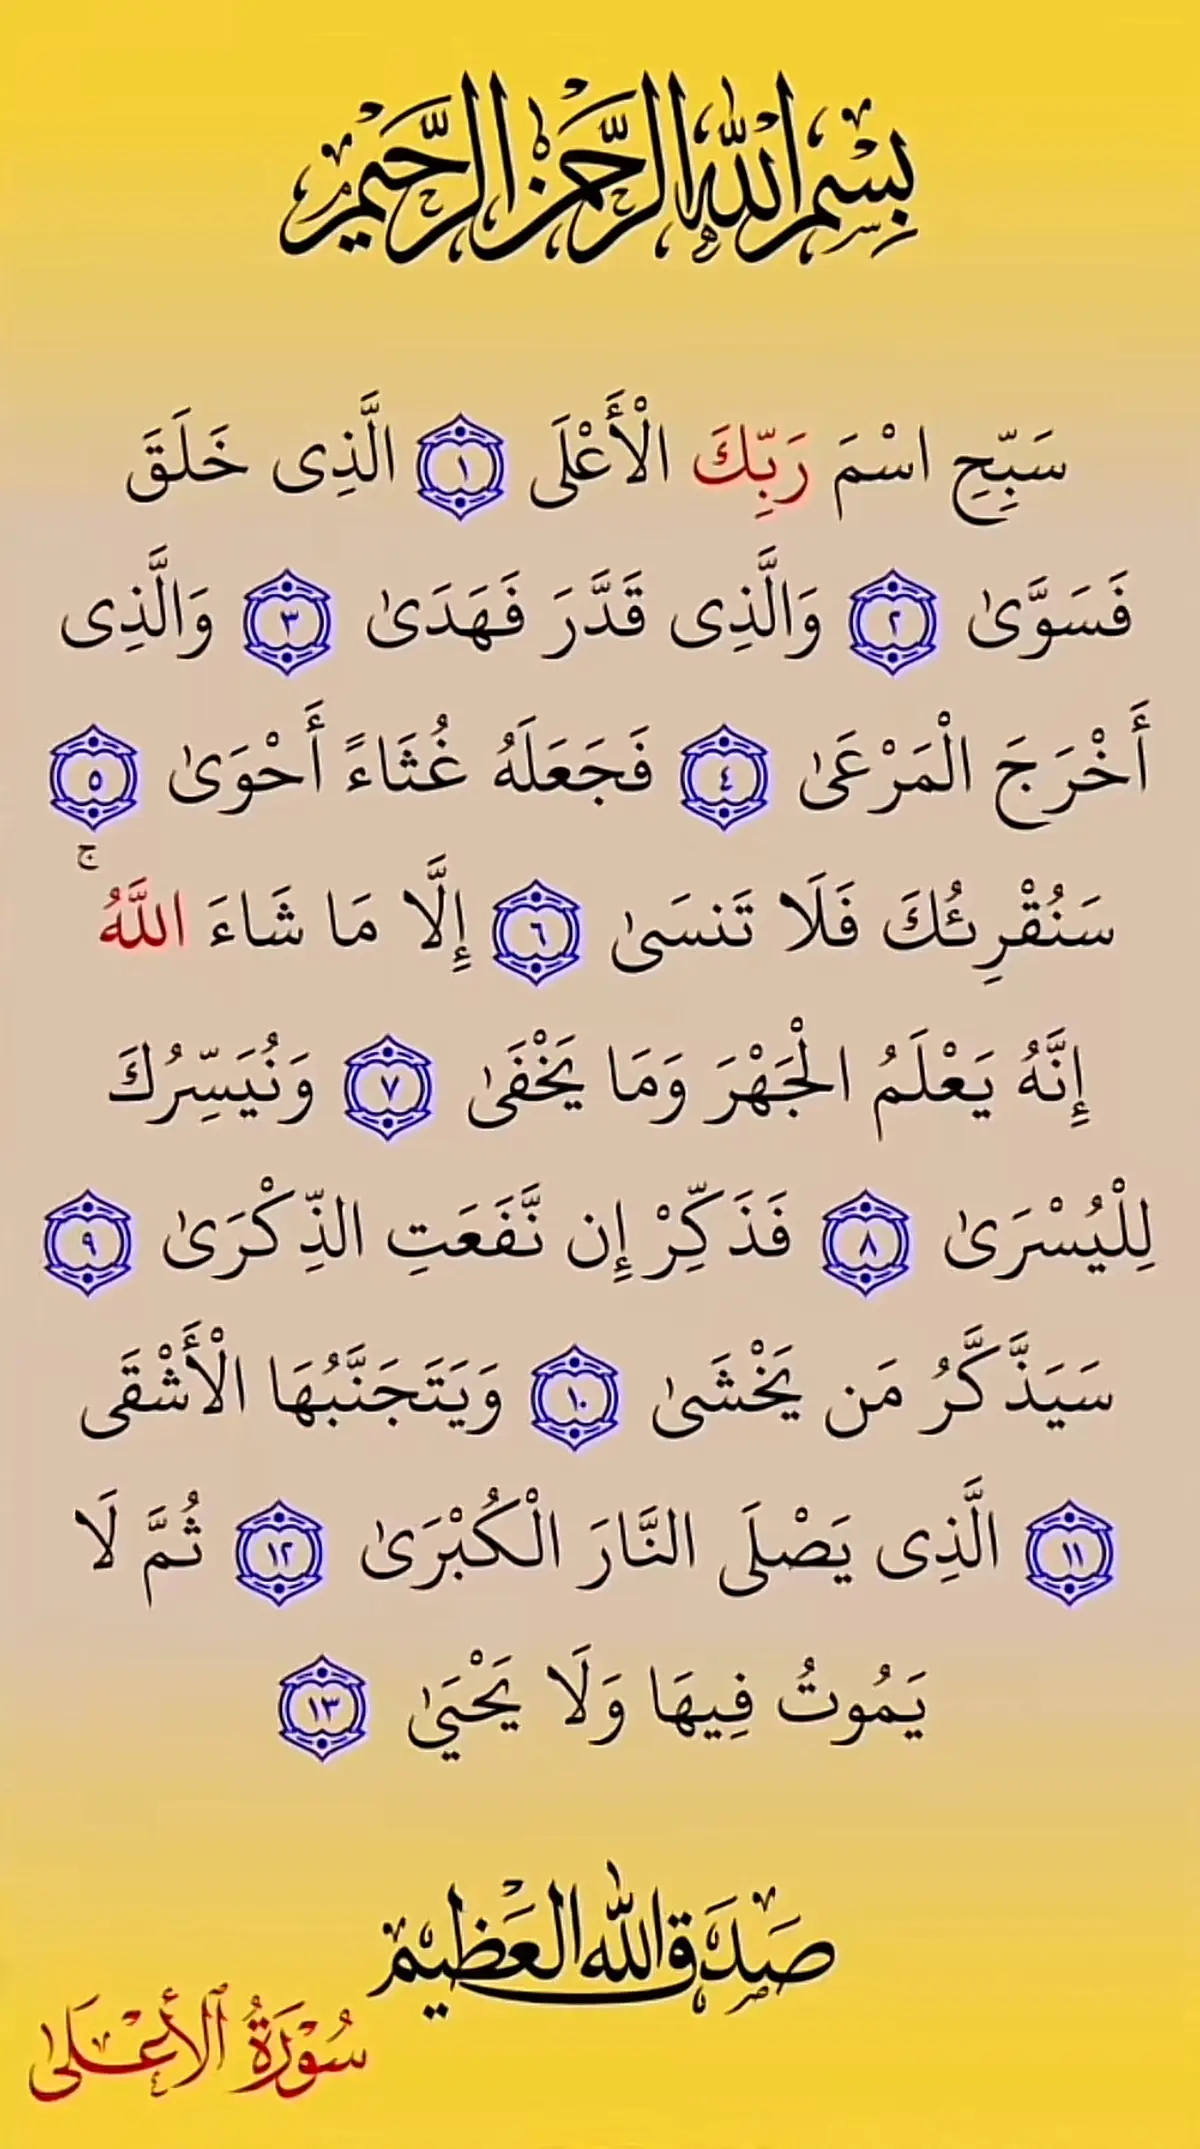 بِسْمِ اللهِ الرَّحْمٰنِ الرَّحِيْمِ
سَبِّحِ اسْمَ رَبِّكَ الْأَعْلَى ١ الَّذِى خَلَقَ
فَسَوَّىٰ ٢ وَالَّذِى قَدَّرَ فَهَدَىٰ ٣ وَالَّذِى
أَخْرَجَ الْمَرْعَىٰ ٤ فَجَعَلَهُ غُثَاءً أَحْوَىٰ ٥
سَنُقْرِئُكَ فَلَا تَنسَىٰ ٦ إِلَّا مَا شَاءَ اللَّهُ ۚ
إِنَّهُ يَعْلَمُ الْجَهْرَ وَمَا يَخْفَىٰ ٧ وَنُيَسِّرُكَ
لِلْيُسْرَىٰ ٨ فَذَكِّرْ إِن نَّفَعَتِ الذِّكْرَىٰ ٩
سَيَذَّكَّرُ مَن يَخْشَىٰ ١٠ وَيَتَجَنَّبُهَا الْأَشْقَى
١١ الَّذِى يَصْلَى النَّارَ الْكُبْرَىٰ ١٢ ثُمَّ لَا
يَمُوتُ فِيهَا وَلَا يَحْيَىٰ ١٣
صَدَقَ اللهُ الْعَظِيْم
سُوْرَةُ ٱلأَعْلَىٰ